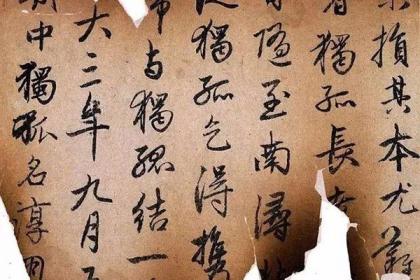 損其本尤難
者獨孤長
隨至南潯
從獨孤乞得攜
与獨孤結一
大三年九月五
中獨孤名淳朋